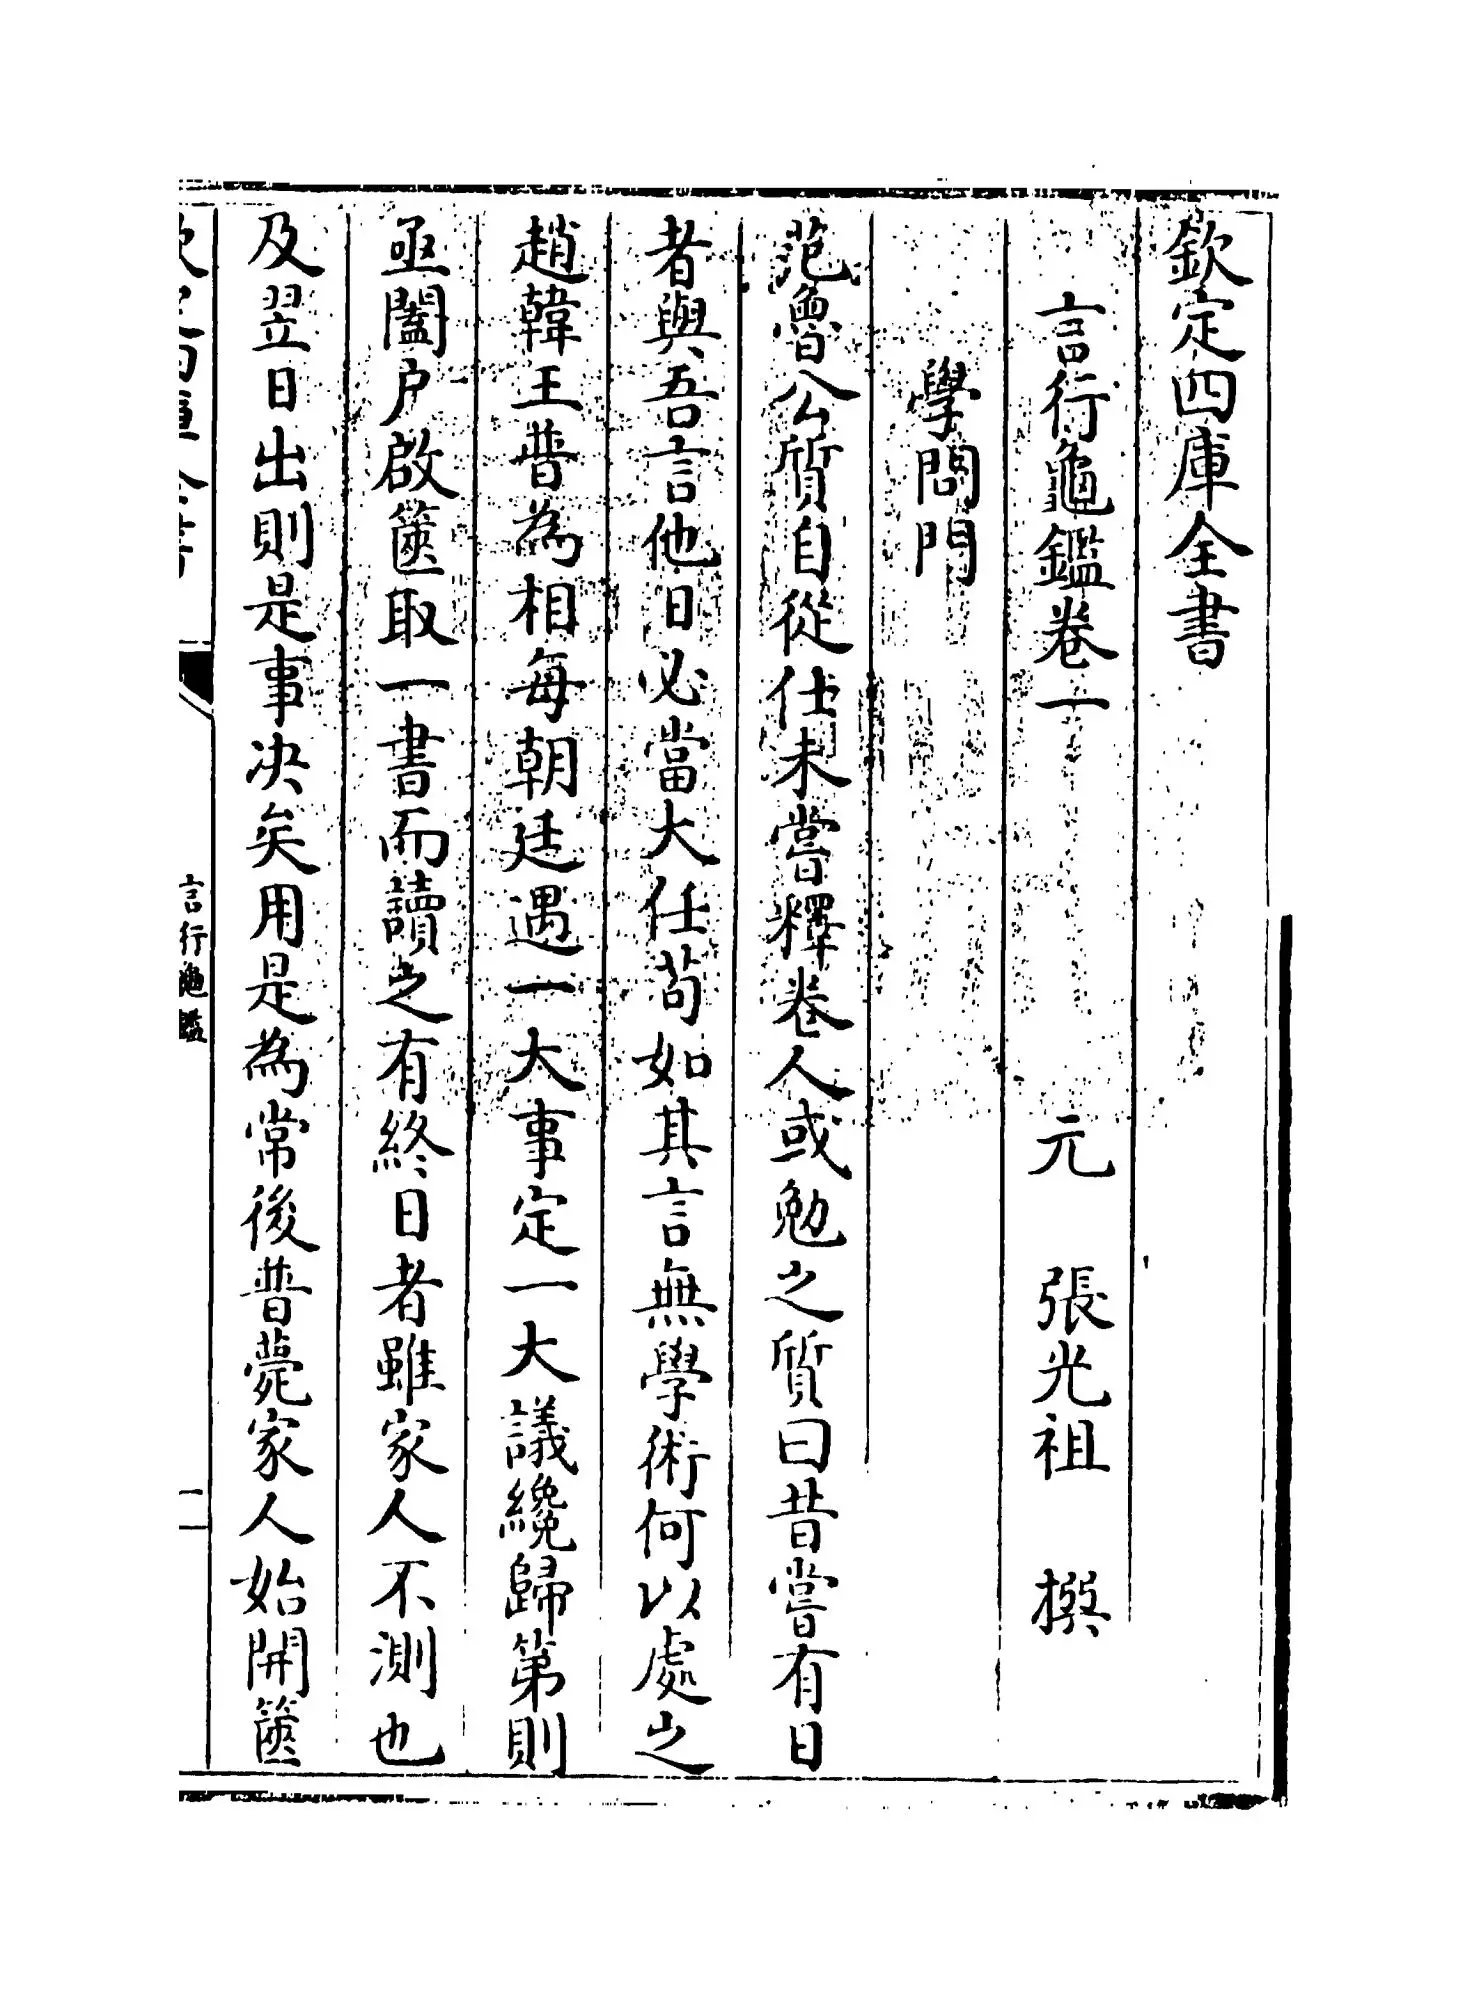 欽定四庫全書
言行龜鑑卷一　元　張光祖　撰
學問門
范魯公質自從仕未嘗釋卷人或勉之質曰昔嘗有日
者與吾言他日必當大任苟如其言無學術何以處之
趙韓王普為相每朝廷遇一大事定一大議纔歸第則
亟闔户啟篋取一書而讀之有終日者雖家人不測也
及翌日出則是事决矣用是為常後普薨家人始開篋
言行龜鑑
一